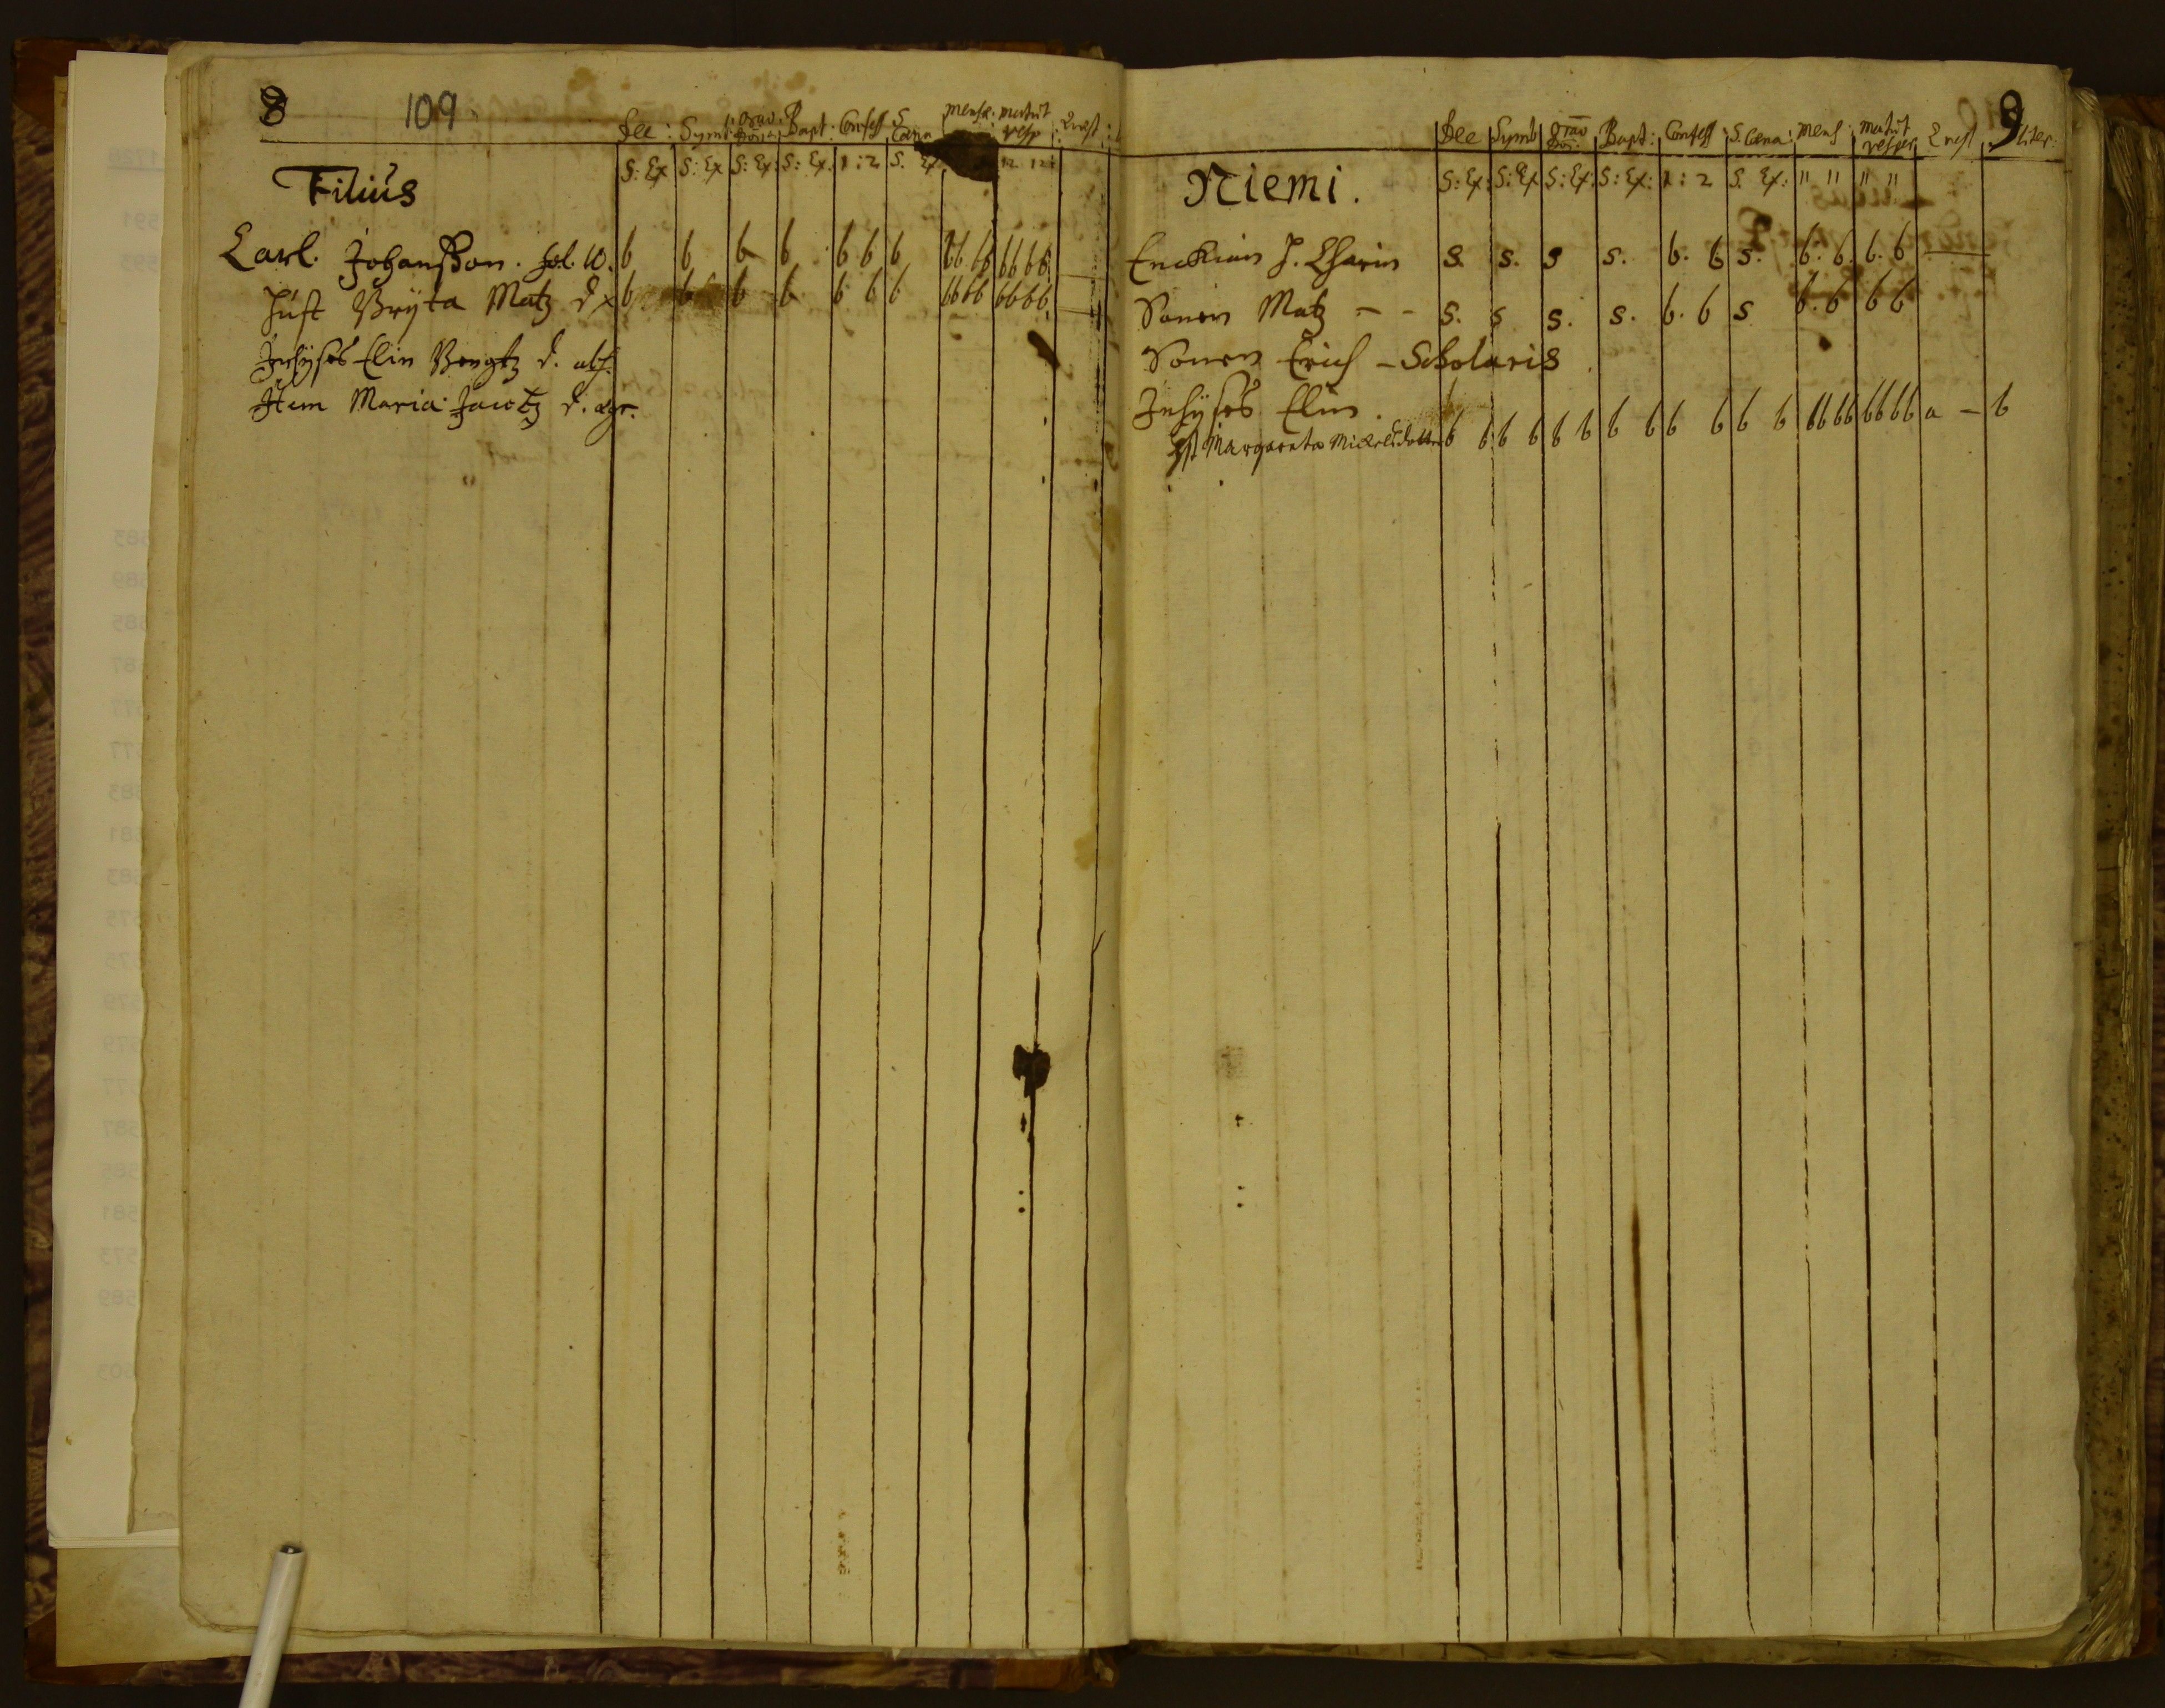 8 109
Dec: Symb: Orao Dom: Bapt: Confess S Cæna Mensæ: matut vesp Quest:
Filius S: Ex S: Ex S: Ex: S: Ex: 1:2 S. Ex 12 12:
Carl. Johansson. fol. 10. b b b b b b b bb bb bb bb
Hust Bryta Matz d x b b b b b b b bb bb bb bb
Inhyses Elin Bengtz d.
Item Maria Jacobz d.
9
Dec Symb Orao Dom: Bapt: Confess S. Cæna: Mens: matut vesper Quest Liter:
Niemi. S: Ex: S: Ex S: Ex: S: Ex: 1:2 S. Ex: " " " "
Enckian H. Charin s. s. s s. b. b s. b. b. b. b
Sonen Matz - - s. s s. s. b. b s b. b b b
Sonen Erich - Scholaris
Inhyses Elin.
Margareta Mickelsdotter b b b b b b b b b b b b bb bb bb bb a - b